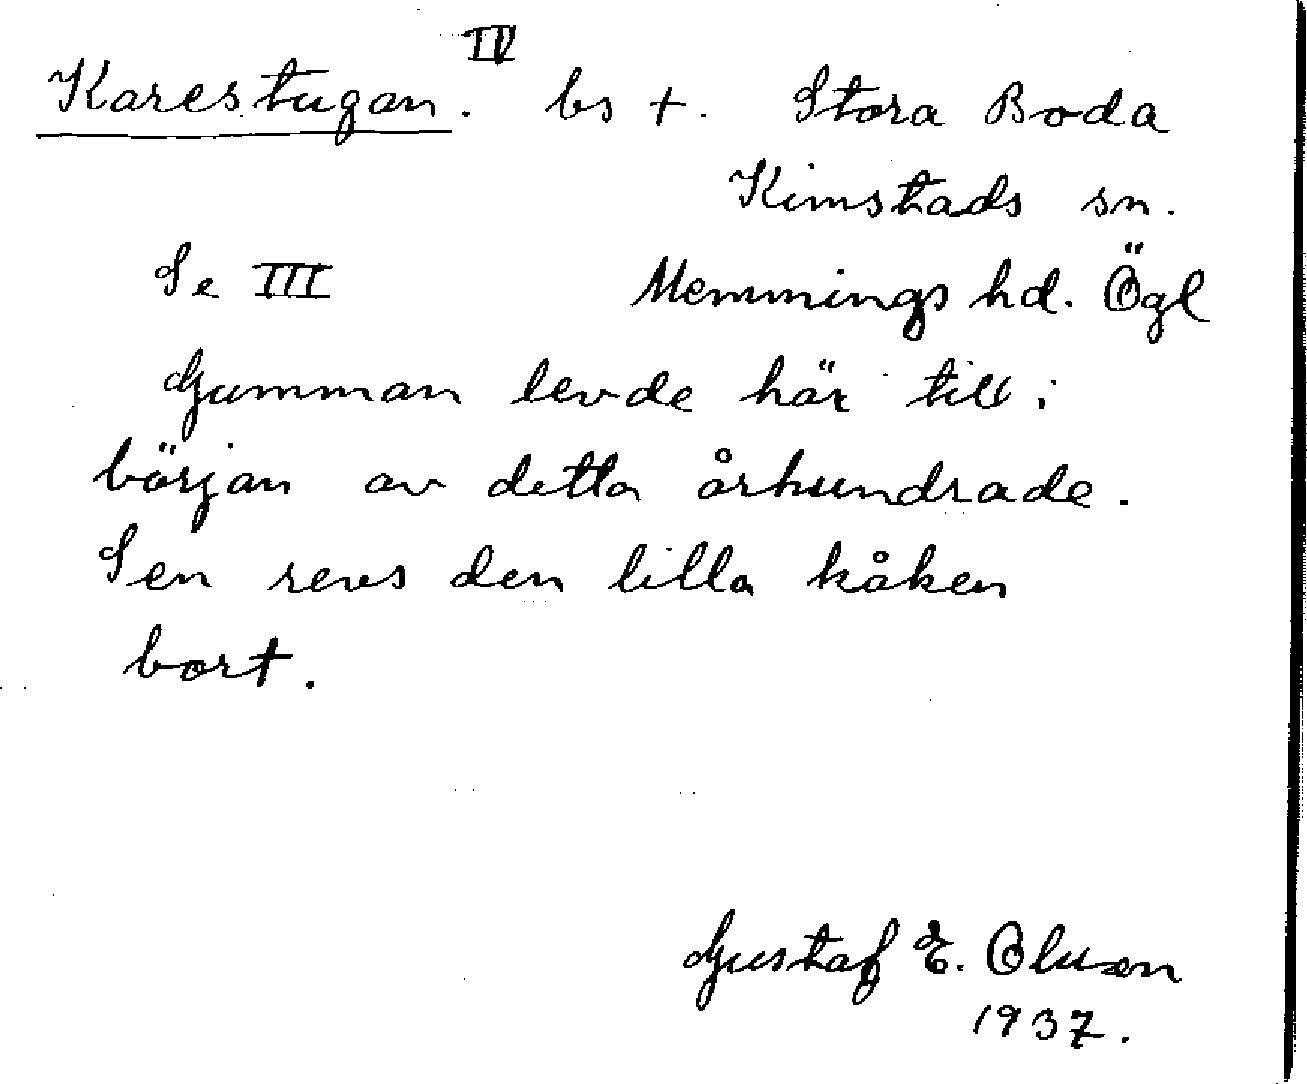 IV
Karestugan. bs +. Stora Boda
Kimstads sn.
Se III Memmings hd. Ögl
Gumman levde här till i
början av detta århundrade.
Sen revs den lilla kåken
bort.
Gustaf E. Oluson
1937.